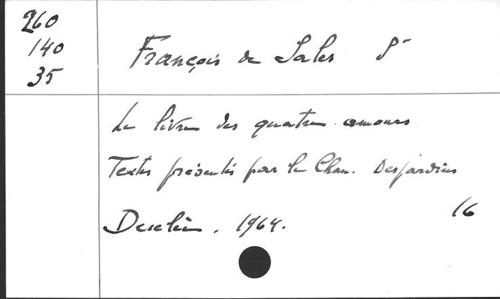 260
140
35
François de Sales St
Le livre des quatre amours
Textes présentés par le Chan. Desjardins
Desclée. 1964.
16